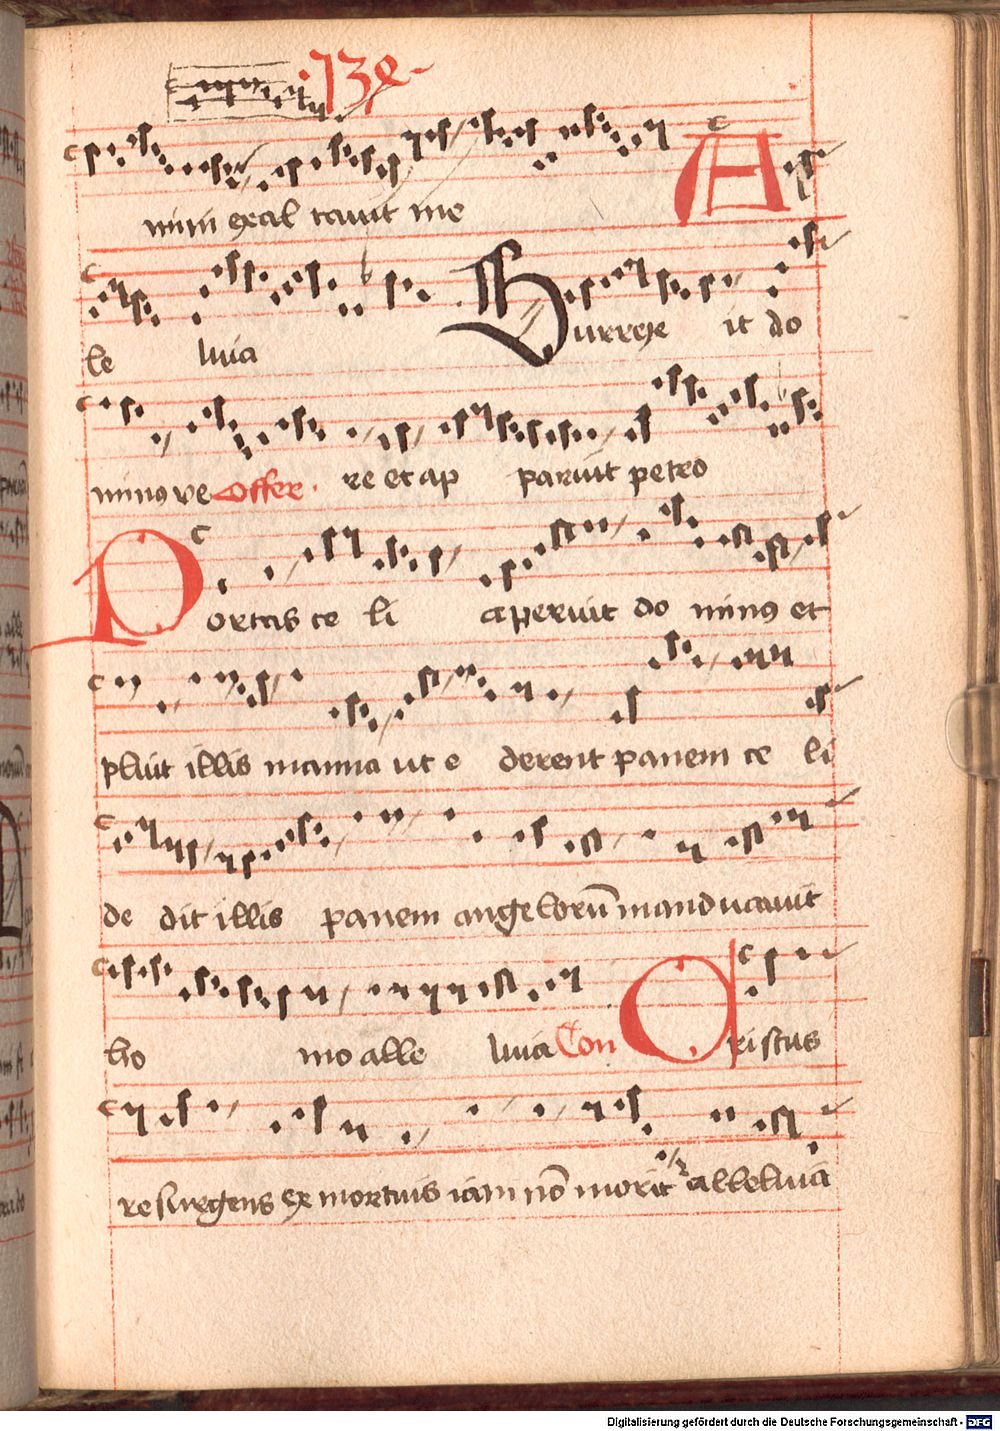 139
mini exal tavit me A
le luia Surrexe it do
minus ve Offer. re et ap paruit petro
Portas ce li aperuit do minus et
pluit illis manna ut e derent panem ce li
de dit illis panem angelorū manducauit
ho mo alle luia Con Cristus
resurgens ex mortuis iam nō morit alleluia
Digitalisierung gefördert durch die Deutsche Forschungsgemeinschaft - DFG